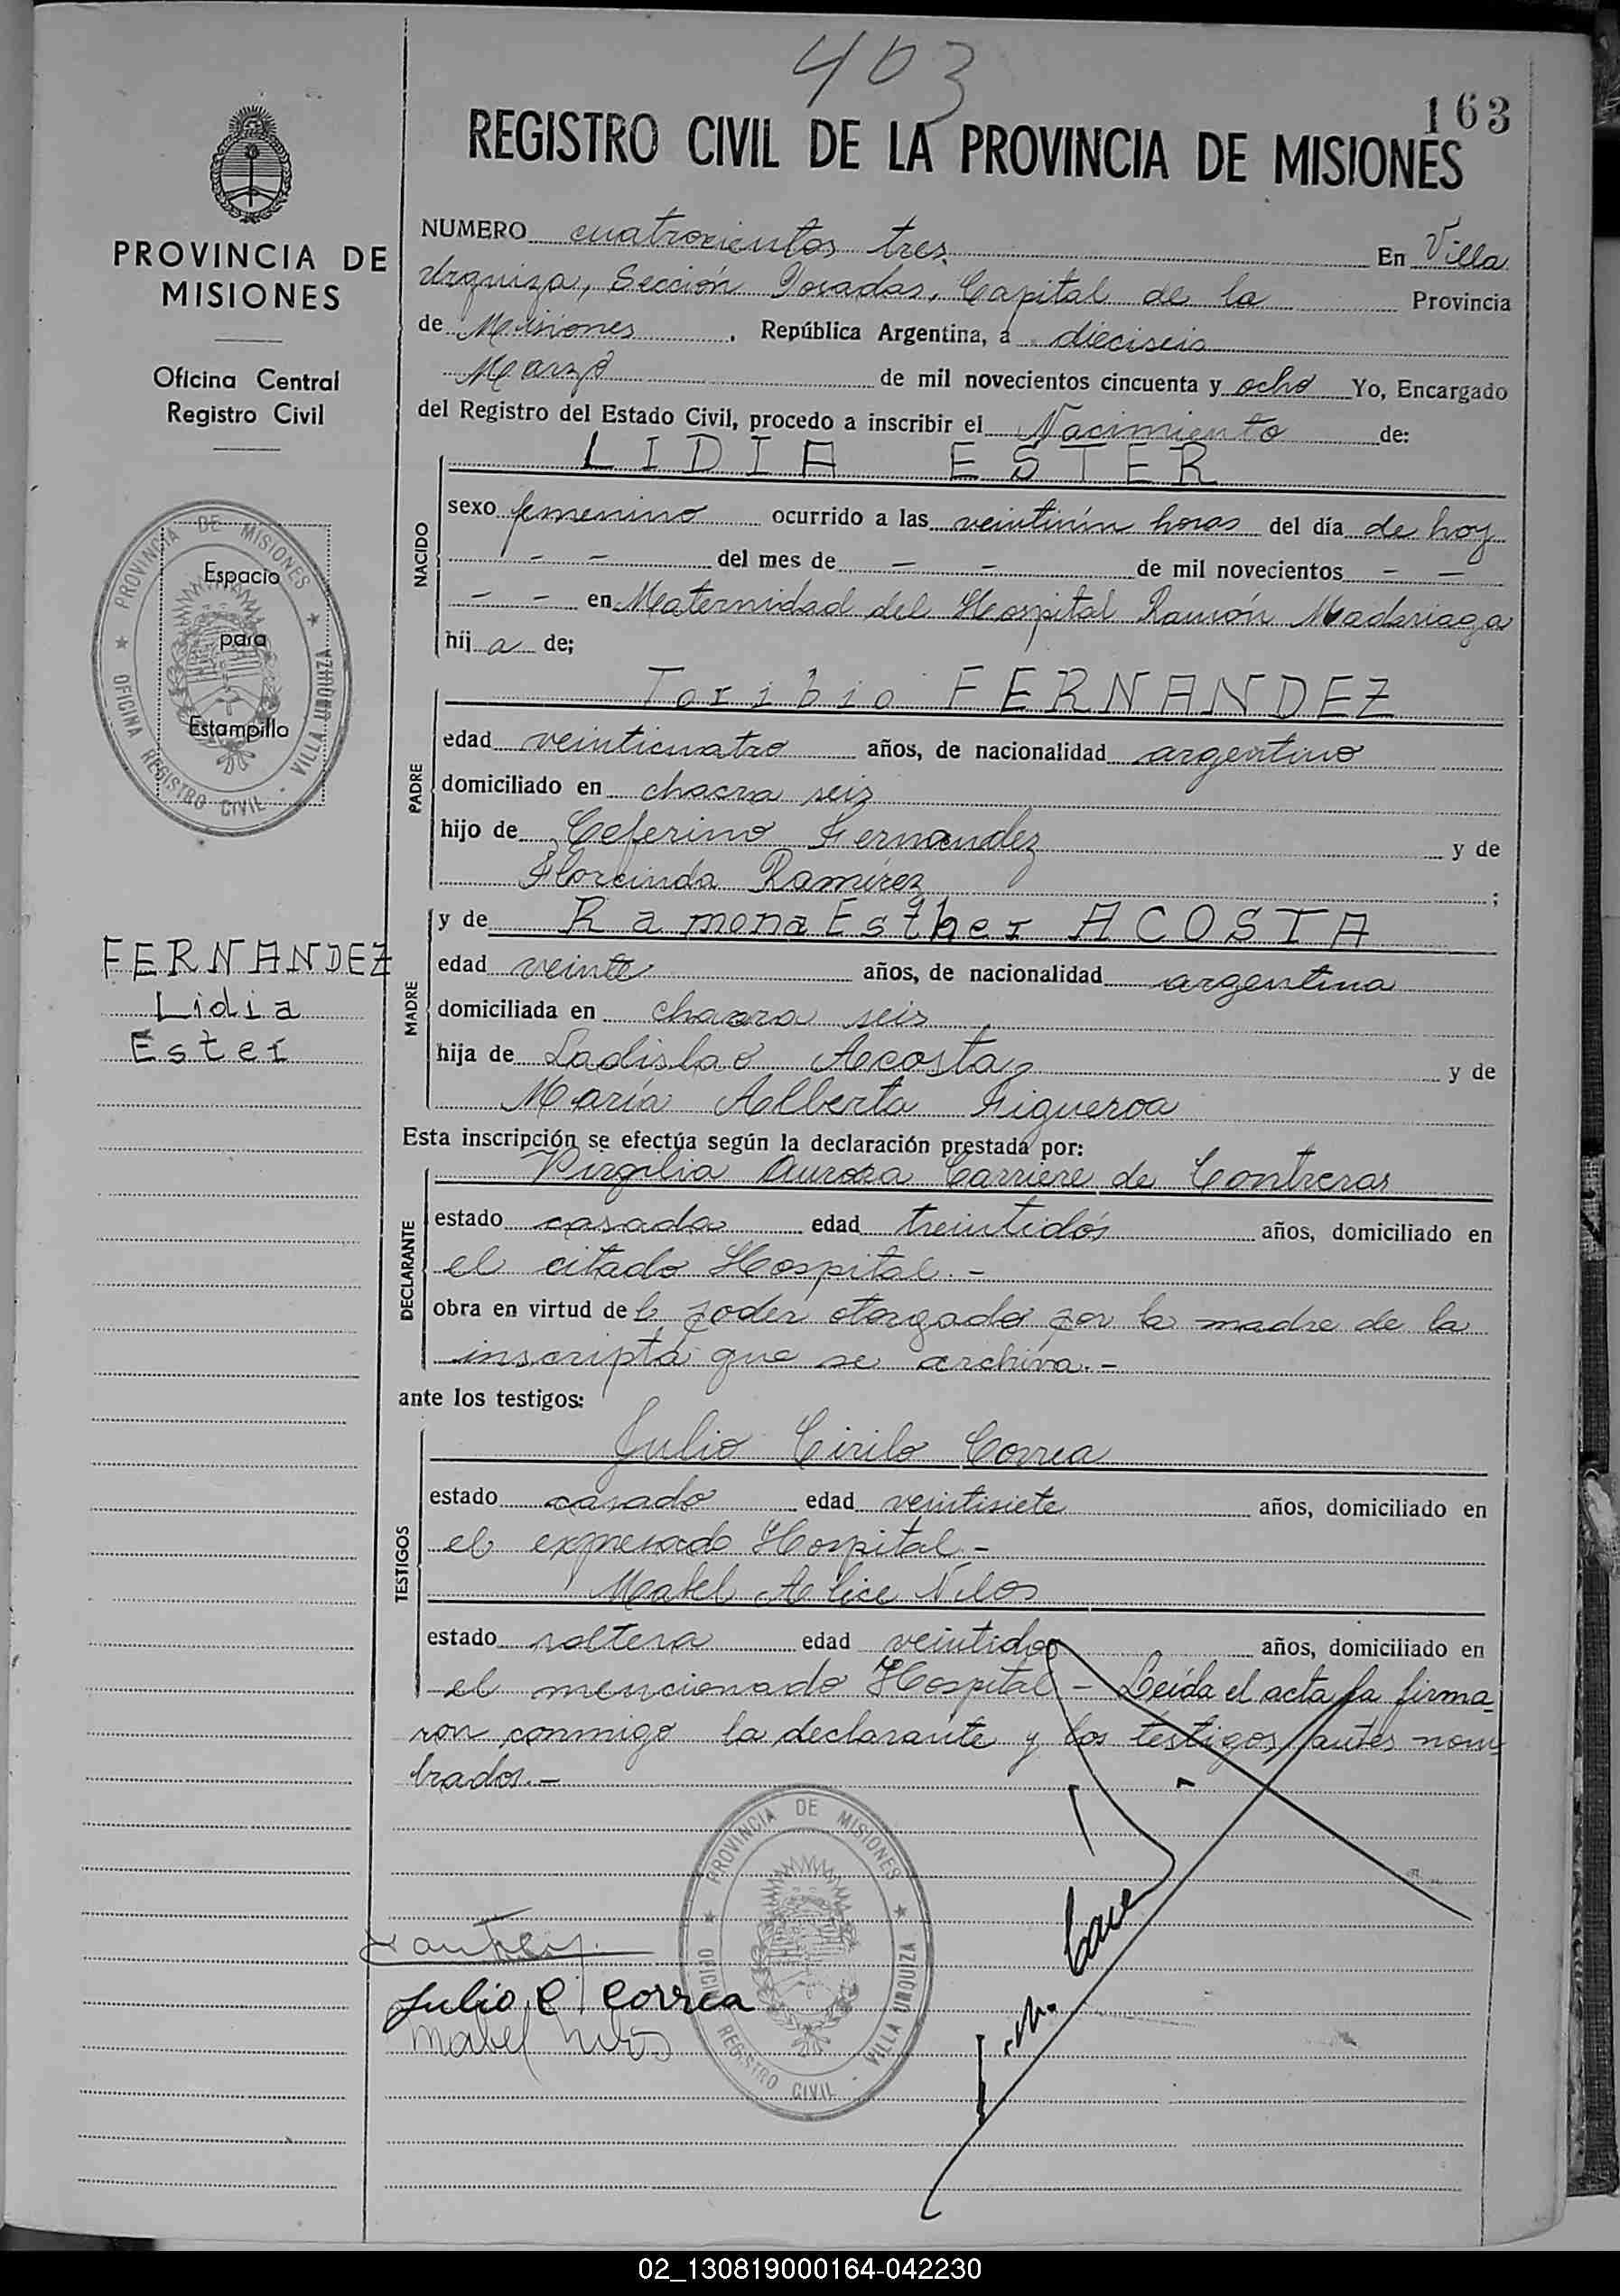 403
163
REGISTRO CIVIL DE LA PROVINCIA DE MISIONES
PROVINCIA DE
MISIONES
Oficina Central
Registro Civil
PROVINCIA DE MISIONES
OFICINA REGISTRO CIVIL - VILLA URQUIZA
Espacio
para
Estampilla
FERNANDEZ
Lidia
Ester
NUMERO cuatrocientos tres. En Villa
Urquiza, Sección Posadas, Capital de la Provincia
de Misiones, República Argentina, a dieciseis
Marzo de mil novecientos cincuenta y ocho Yo, Encargado
del Registro del Estado Civil, procedo a inscribir el Nacimiento de:
NACIDO
LIDIA ESTER
sexo femenino ocurrido a las veintiún horas del día de hoy
- - del mes de - - de mil novecientos - -
- - en Maternidad del Hospital Ramón Madariaga
hij a de;
PADRE
Toribio FERNANDEZ
edad veinticuatro años, de nacionalidad argentino
domiciliado en chacra seis
hijo de Ceferino Fernandez y de
Florcinda Ramírez ;
MADRE
y de Ramona Esther ACOSTA
edad veinte años, de nacionalidad argentina
domiciliada en chacra seis
hija de Ladislao Acosta y de
María Alberta Figueroa
Esta inscripción se efectúa según la declaración prestada por:
DECLARANTE
Virgilia Aurora Carriere de Contreras
estado casada edad treintidós años, domiciliado en
el citado Hospital.-
obra en virtud de lo poder otorgado por la madre de la
inscripta que se archiva.-
ante los testigos:
TESTIGOS
Julio Cirilo Correa
estado casado edad veintisiete años, domiciliado en
el expresado Hospital-
Mabel Alice Nilos
estado soltera edad veintidos años, domiciliado en
el mencionado Hospital - Leída el acta la firma
ron conmigo la declarante y los testigos antes nom-
brados.-
PROVINCIA DE MISIONES
OFICINA REGISTRO CIVIL - VILLA URQUIZA
Julio C. Correa
Mabel Nilos
02_130819000164-042230